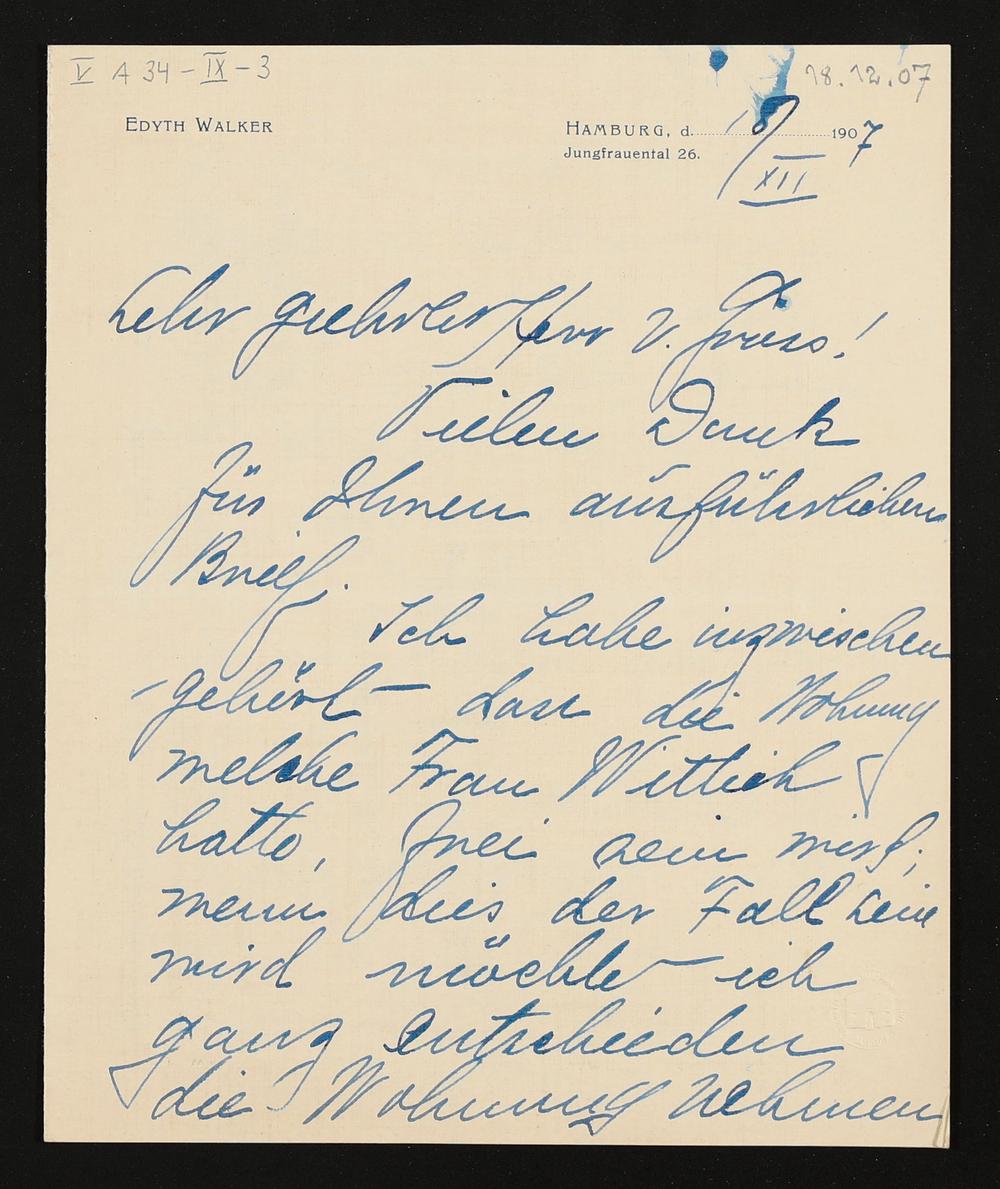 V A 34 - IX - 3
18.12.07
EDYTH WALKER
HAMBURG, d. 18/XII 1907
Jungfrauental 26.
Sehr geehrter Herr v. Gross!
Vielen Dank
für Ihnen ausführlichen
Brief.
Ich habe inzwischen
gehört - dass die Wohnung
welche Frau Wittich
hatte, frei sein wird;
wenn dies der Fall sein
wird möchte ich
ganz entschieden
die Wohnung nehmen